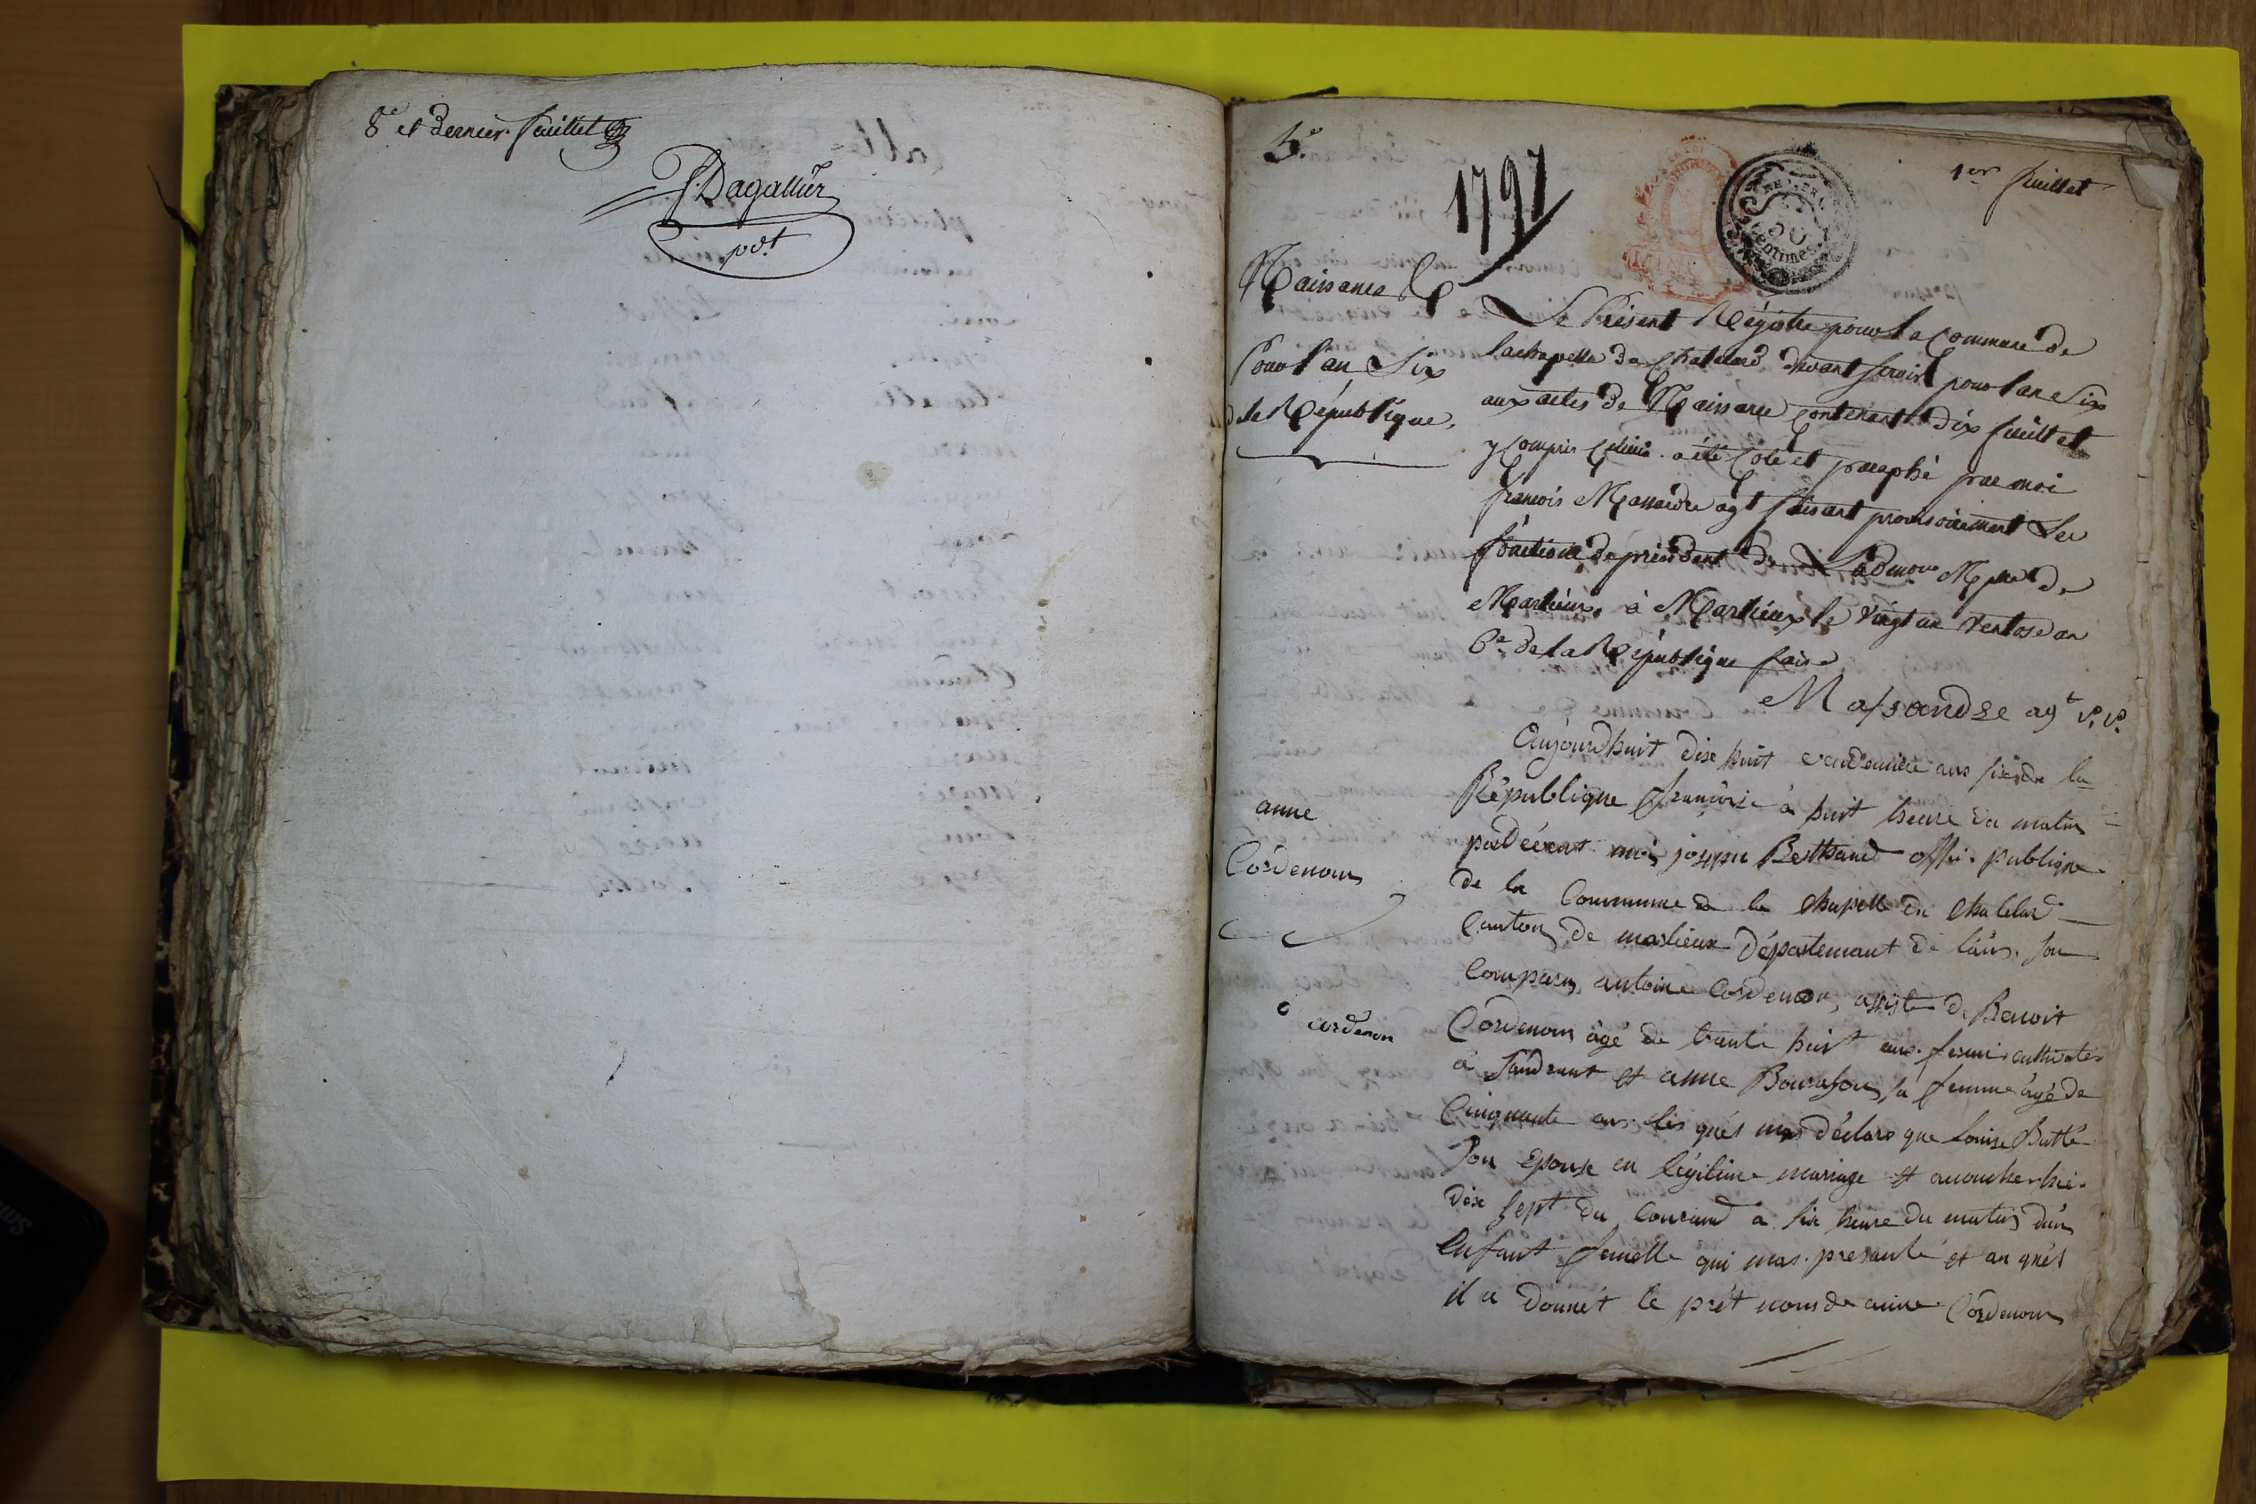 8e et dernier feuillet
P. Dagallier
pdt
5e
1797
1er feuillet
50
Centimes
Naissance
Pour l'an Six
de la République,
Le Présent Régistre pour la Commune de
lachapelle du Chatelard devant servir pour l'an Six
aux actes de Naissance contenant dix feuillet
y compris Celuici a été Coté et paraphé par moi
françois Massardre agt faisant provisoirement Les
fonctions de président de L'admon Mple de
Marlieux, à Marlieux le vingt un ventose an
6e de la République fairé
Massandre agt
Aujourdhuit dix huit vendemière ans sixde la
République françoise à huit heure du matin
pardevent moi joseph Berthaud offi. publique
de la Commune de la Chapelle du Chatelard
Canton de marlieux Département de lains. son
Comparu antoine Cordenon, assisté de Benoit
Cordenon âgé de trante huit ans. fermi cultivater
à Sandrant et anne Bourafon sa femme âgé de
Cinquante ans. lés qués mas déclare que Louise Butté
Son Epouse en légitime mariage et acoucher hié.
dix sept du Courand à six heure du matin d'un
Enfant femelle qui mas. presanté et au qués
il a donnét le prét noms de anne Cordenon
anne
Cordenon
cordenon